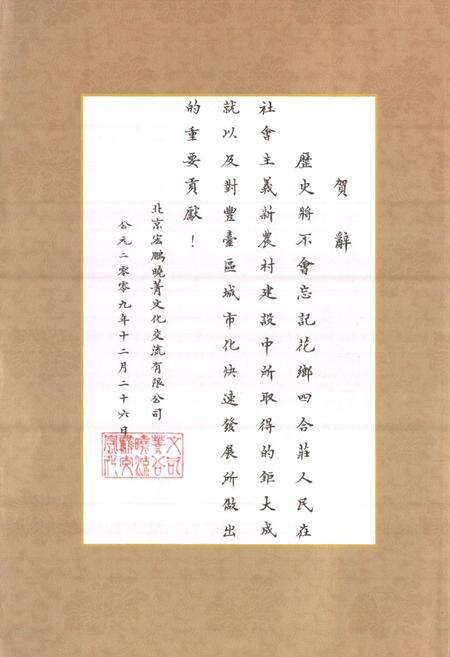 賀辭
歷史將不會忘記花鄉四合莊人民在
社會主義新農村建設中所取得的鉅大成
就以及對豐臺區城市化快速發展所做出
的重要貢獻！
北京宏鵬曉菁文化交流有限公司
公元二零零九年十二月二十六日